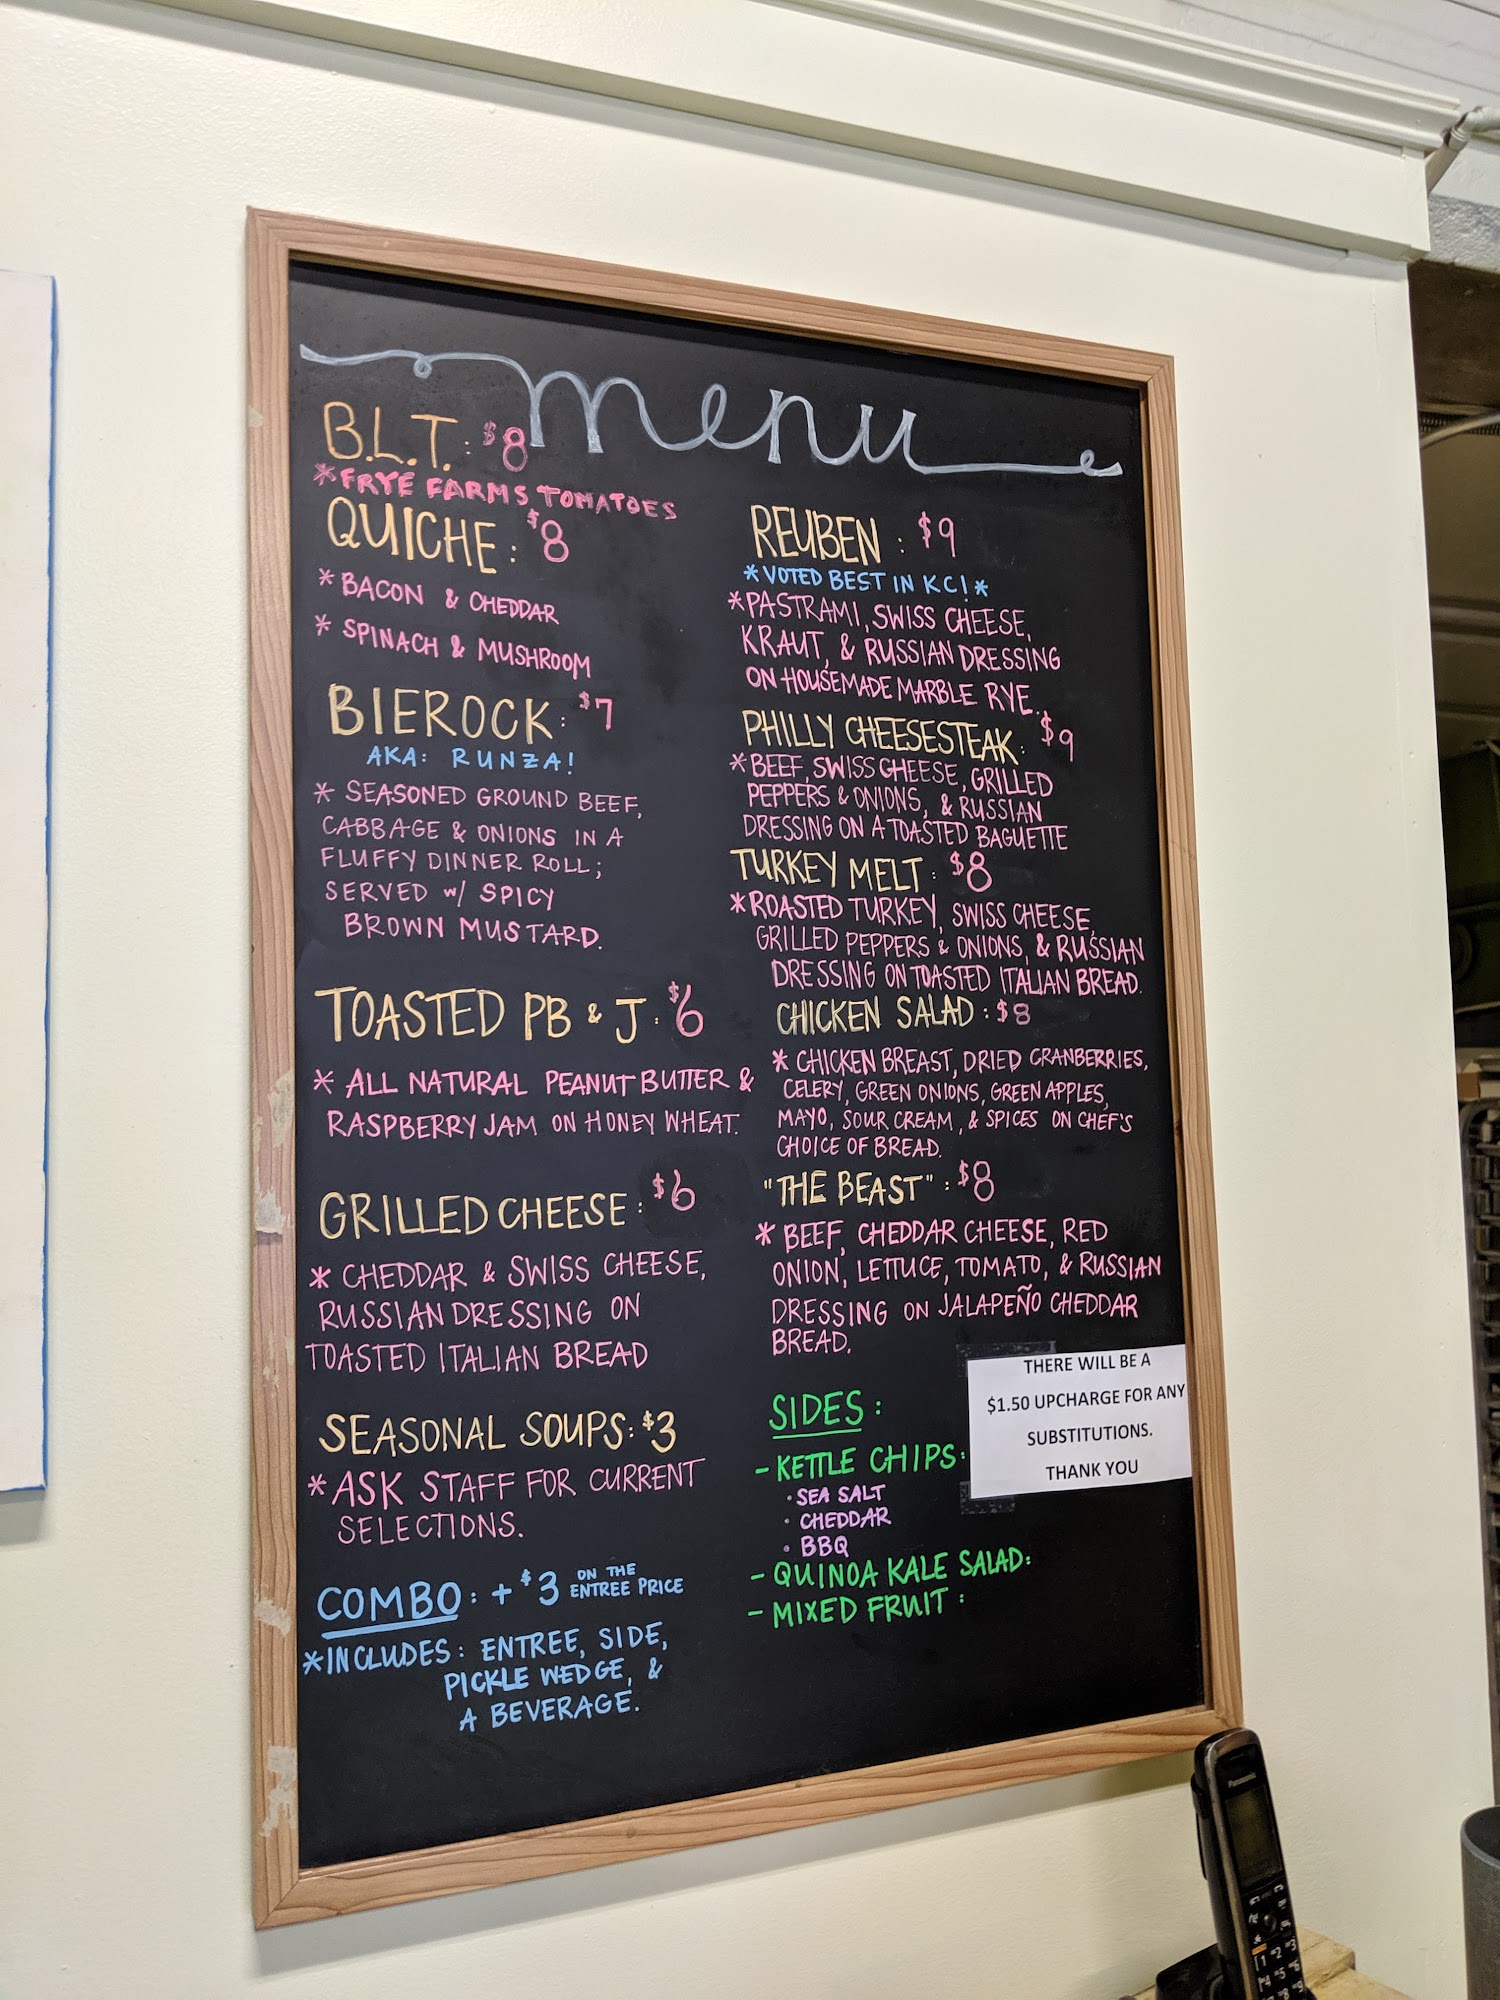 menu
B.L.T. : $8
*FRYE FARMS TOMATOES
QUICHE : $8
* BACON & CHEDDAR
* SPINACH & MUSHROOM
BIEROCK : $7
AKA: RUNZA!
* SEASONED GROUND BEEF,
CABBAGE & ONIONS IN A
FLUFFY DINNER ROLL;
SERVED w/ SPICY
BROWN MUSTARD.
TOASTED PB & J : $6
* ALL NATURAL PEANUT BUTTER &
RASPBERRY JAM ON HONEY WHEAT.
GRILLED CHEESE : $6
* CHEDDAR & SWISS CHEESE,
RUSSIAN DRESSING ON
TOASTED ITALIAN BREAD
SEASONAL SOUPS: $3
* ASK STAFF FOR CURRENT
SELECTIONS.
COMBO : + $3 ON THE
ENTREE PRICE
*INCLUDES : ENTREE, SIDE,
PICKLE WEDGE, &
A BEVERAGE.
REUBEN : $9
*VOTED BEST IN KC!*
*PASTRAMI, SWISS CHEESE,
KRAUT, & RUSSIAN DRESSING
ON HOUSEMADE MARBLE RYE.
PHILLY CHEESESTEAK: $9
*BEEF, SWISS CHEESE, GRILLED
PEPPERS & ONIONS, & RUSSIAN
DRESSING ON A TOASTED BAGUETTE
TURKEY MELT : $8
*ROASTED TURKEY, SWISS CHEESE,
GRILLED PEPPERS & ONIONS, & RUSSIAN
DRESSING ON TOASTED ITALIAN BREAD.
CHICKEN SALAD : $8
* CHICKEN BREAST, DRIED CRANBERRIES,
CELERY, GREEN ONIONS, GREEN APPLES,
MAYO, SOUR CREAM, & SPICES ON CHEF'S
CHOICE OF BREAD.
"THE BEAST" : $8
* BEEF, CHEDDAR CHEESE, RED
ONION, LETTUCE, TOMATO, & RUSSIAN
DRESSING ON JALAPEÑO CHEDDAR
BREAD.
SIDES :
- KETTLE CHIPS:
• SEA SALT
• CHEDDAR
• BBQ
- QUINOA KALE SALAD:
- MIXED FRUIT :
THERE WILL BE A
$1.50 UPCHARGE FOR ANY
SUBSTITUTIONS.
THANK YOU
Panasonic